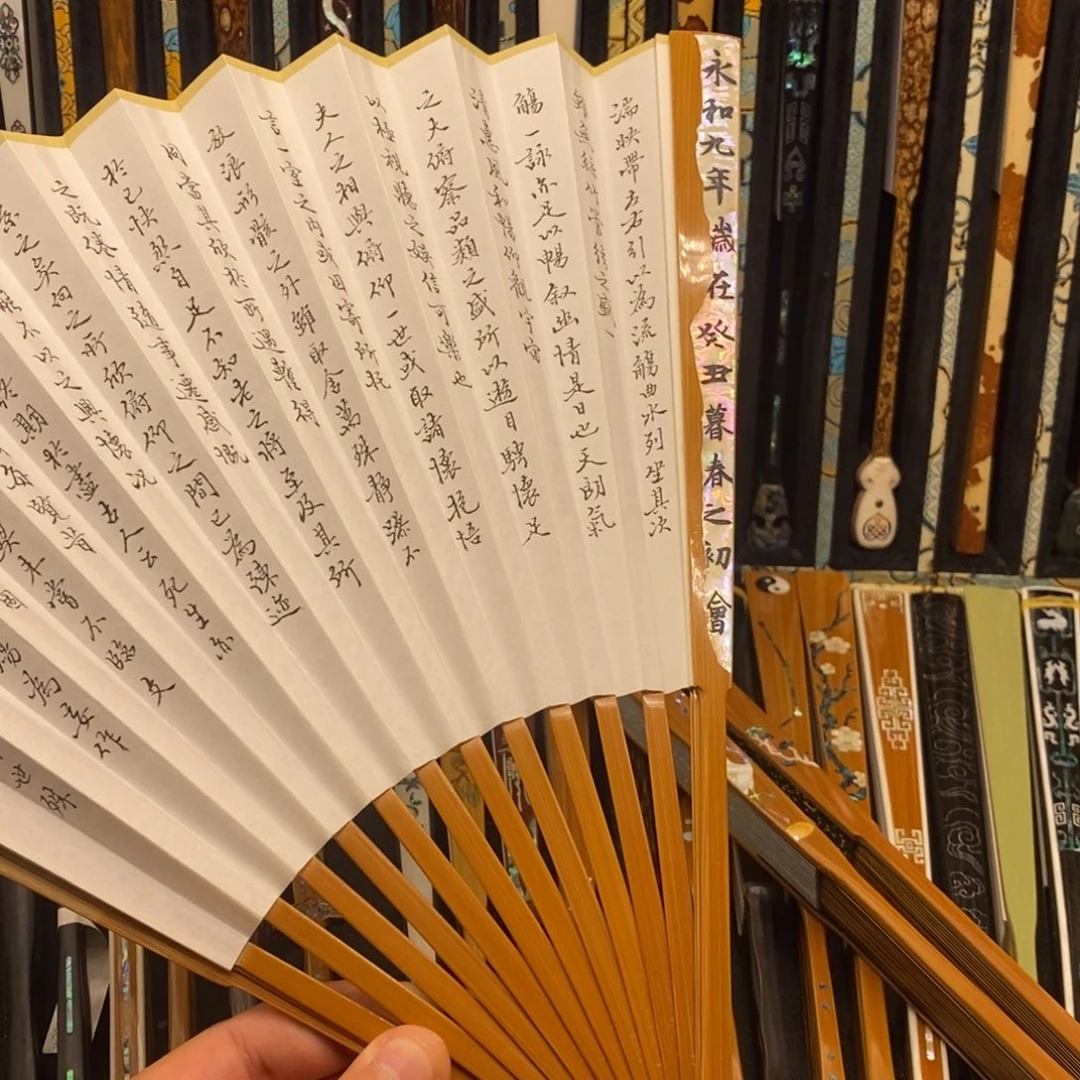 永和九年歲在癸丑暮春之初會
湍映帶左右引以為流觴曲水列坐其次
雖無絲竹管絃之盛、
觴一詠亦足以暢叙幽情是日也天朗氣
清惠風和暢仰觀宇宙
之大俯察品類之盛所以遊目騁懷足
以極視聽之娛信可樂也
夫人之相與俯仰一世或取諸懷抱悟
言一室之內或因寄所託
放浪形骸之外雖取舍萬殊靜躁不
同當其欣於所遇暫得
於己快然自足不知老之將至及其所
之既倦情隨事遷感慨
係之矣向之所欣俯仰之間已為陳迹
能不以之興懷況
終期於盡古人云死生亦
每覽昔
契未嘗不臨文
固
殤為妄作
世殊